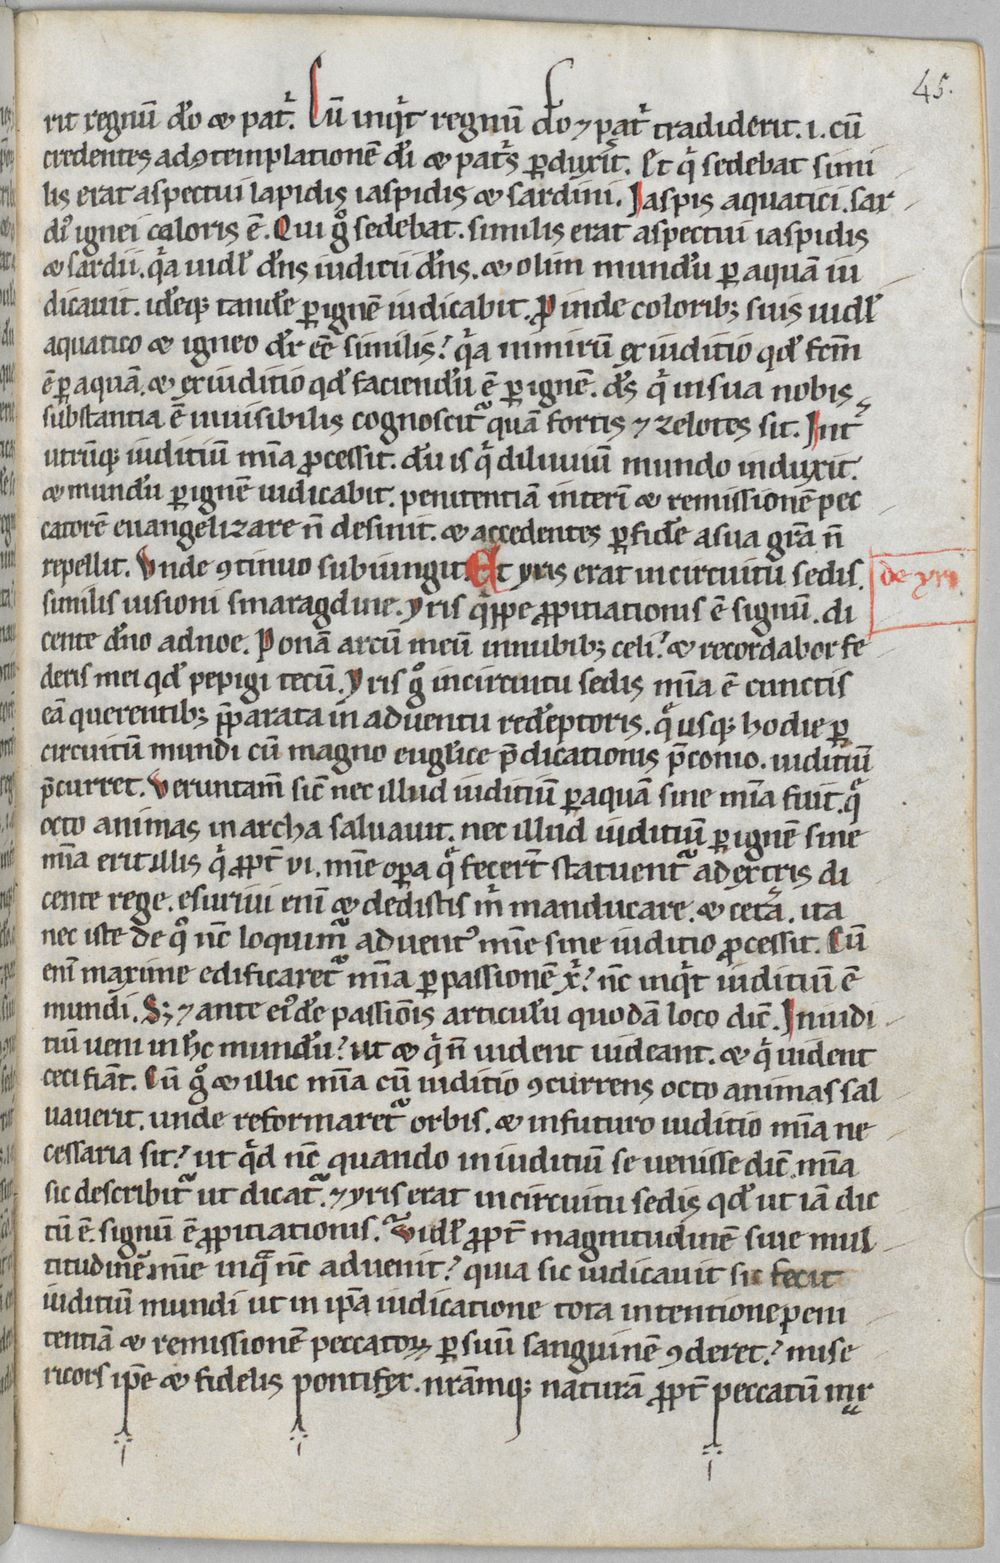 45.
rit regnū do̅ ⁊ patͥ. Cū inqͥt regnū do̅ ⁊ patͥ tradiderit. i. cū
credentes ad ꝯtemplationē di̅ ⁊ patͥs ꝑduxit̅. Et qͥ sedebat simi
lis erat aspectui lapidis iaspidis ⁊ sardini. Iaspis aquatici. sar
di᷑ ignei coloris ē. Qui gͦ sedebat. similis erat aspectui iaspidis
⁊ sardii. qͥa uidl̅ dn̅s iuditii dn̅s. ⁊ olim mundu̅ ꝑ aquā iu
dicauit. ide̅qꝫ tande̅ ꝑ ignē iudicabit. ꝓinde coloribꝫ suis uidl̅
aquatico ⁊ igneo dr̅ ee̅ similis? qͥa nimirū ex iuditio qd̅ fcm̅
ē ꝑ aquā. ⁊ ex iuditio qd̅ faciendu̅ ē ꝑ ignē. ds̅ qͥ in sua nobis
substantia ē inuisibilis cognoscit᷑ quā fortis ⁊ zelotes sit. Int̅
utrūqꝫ iuditiū mi̅a ꝓcessit. du̅ is qͥ diluuiū mundo induxit.
⁊ mundu̅ ꝑ ignē iudicabit. penitentiā interi̅ ⁊ remissionē pec
catorē euangelizare n̅ desinit. ⁊ accedentes ꝑ fide̅ a sua gra̅ n̅
repellit. Vnde ꝯtinuo subiungit. Et yris erat in circuitu sedis.
de yri
similis uisioni smaragdine. Yris qͥppe ꝓpitiationis ē signū. di
cente dn̅o ad noe. Ponā arcū meū in nubibꝫ celi? ⁊ recordabor fe
deris mei qd̅ pepigi tecū. Yris gͦ in circuitu sedis mi̅a ē cunctis
eā querentibꝫ p̅parata in aduentu rede̅ptoris. qͣ usqꝫ hodie ꝑ
circuitū mundi cū magno eug̅lice p̅dicationis p̅conio. iuditiū
p̅curret. Veruntam̅ sic̅ nec illud iuditiū ꝑ aquā sine mi̅a fuit. qͣ
octo animas in archa saluauit. nec illud iuditiū ꝑ ignē sine
mi̅a erit illis qͥ ꝓpt̅ vi. mi̅e opa̅ qͣ fecer̅t statuent᷑ a dextris di
cente rege. esuriui eni̅ ⁊ dedistis mͥ manducare. ⁊ cetā. ita
nec iste de qͦ nc̅ loquim᷑ aduentꝰ mi̅e sine iuditio ꝓcessit. Cū
eni̅ maxime edificaret᷑ mi̅a ꝑ passionē xͥ? nc̅ inqͥt iuditiū ē
mundi. Sꝫ ⁊ ante eiꝰde̅ passiōis articulu̅ quodā loco dic̅. In iudi
tiū ueni in hc̅ mundu̅? ut ⁊ qͥ n̅ uident uideant. ⁊ qͥ uident
ceci fiānt. Cū gͦ ⁊ illic mi̅a cū iuditio ꝯcurrens octo animas sal
uauerit. unde reformaret᷑ orbis. ⁊ in futuro iuditio mi̅a ne
cessaria sit? ut qͥd nc̅ quando in iuditiū se uenisse dic̅. mi̅a
sic describit᷑ ut dicat᷑. ⁊ yris erat in circuitu sedis qd̅ ut iā dic
tū ē. signū ē ꝓpitiationis. Vidl̅ ꝓpt̅ magnitudinē siue mul
titudinē mi̅e in qͣ nc̅ aduenit? quia sic iudicauit sic fecit
iuditiū mundi ut in ipa̅ iudicatione tota intentione peni
tentiā ⁊ remissionē peccatoꝝ ꝑ suū sanguinē ꝯderet? mise
ricors ipe̅ ⁊ fidelis pontifex. nr̅amqꝫ naturā ꝓpt̅ peccatū mr̅